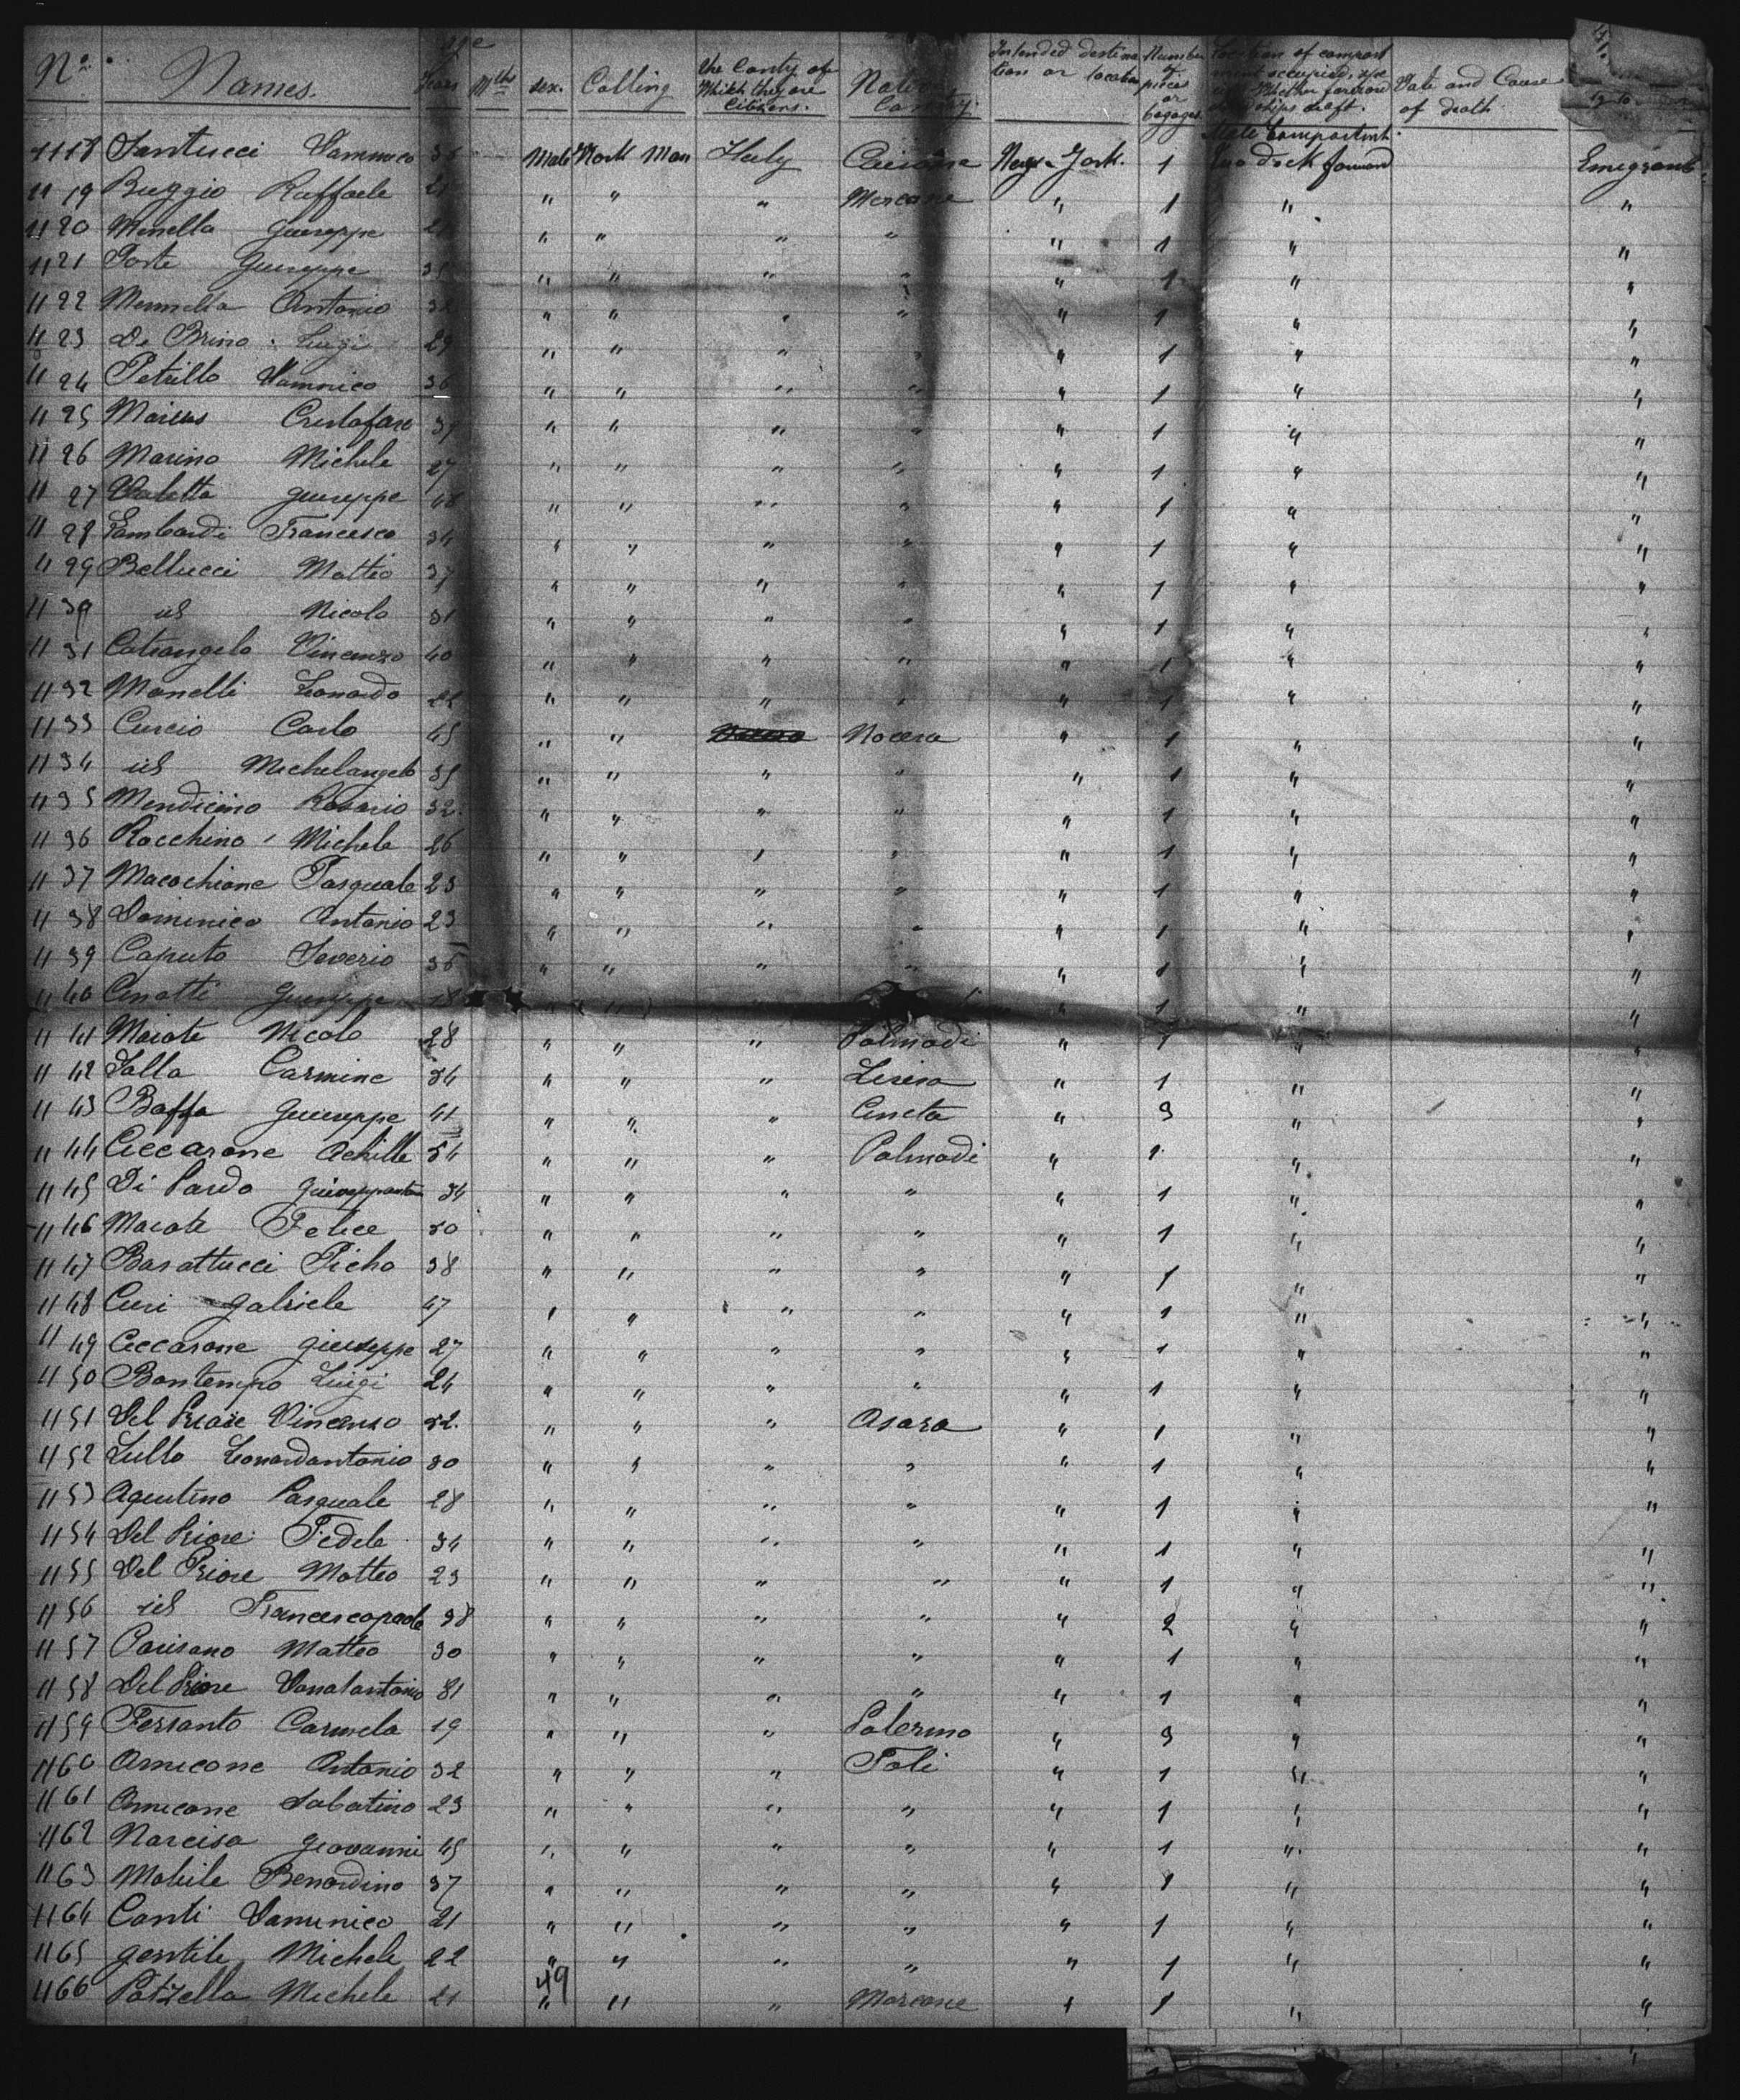 No. Names. Age Years Mths Sex. Calling The Contry of Which they are Citizens. Native Contry. Intended destination or location Number of pieces or bagages Location of compart ment occupied Date and Cause of death
1118 Santucci 35 Male Work Man Italy New-York. 1 forward Emigrant
1119 Buggio Raffaele " " " Morcone " 1 " "
1120 Minella Giuseppe " " " " " 1 " "
1121 Forte Giuseppe " " " " " 1 " "
1122 Mennella Antonio 32 " " " " " 1 " "
1123 De Brino Luigi 29 " " " " " 1 " "
1124 Petrillo Domnico 36 " " " " " 1 " "
1125 Cristofaro " " " " " 1 " "
1126 Marino Michele 27 " " " " " 1 " "
1127 Valetta Giuseppe 48 " " " " " 1 " "
1128 Lombardi Francesco 34 " " " " " 1 " "
1129 Bellucci Matteo 37 " " " " " 1 " "
1130 id Nicolo 31 " " " " " 1 " "
1131 Catrangelo Vincenzo 40 " " " " " 1 " "
1132 Manelli Leonardo " " " " " 1 " "
1133 Curcio Carlo 45 " " Nocera " 1 " "
1134 id Michelangelo 35 " " " " " 1 " "
1135 Mendicino Rosario 32. " " " " " 1 " "
1136 Rocchino Michele 26 " " " " " 1 " "
1137 Macochione Pasquale 23 " " " " " 1 " "
1138 Dominico Antonio 23 " " " " " 1 " "
1139 Caputo Saverio 35 " " " " " 1 " "
1140 Giuseppe 18 " " " " 1 " "
1141 Maiote Nicolo 28 " " " Palmodi " 1 " "
1142 Salla Carmine 34 " " " " 1 " "
1143 Baffa Giuseppe 41 " " " " 3 " "
1144 Ciccarone Achille 54 " " " Palmodi " 1 " "
1145 Di Pardo 34 " " " " " 1 " "
1146 Maiote Felice 50 " " " " " 1 " "
1147 Barattucci 38 " " " " " 1 " "
1148 Curi Gabriele 47 " " " " " 1 " "
1149 Ciccarone Giuseppe 27 " " " " " 1 " "
1150 Bontempo Luigi 24 " " " " " 1 " "
1151 Del Priore Vincenzo 52. " " " Asara " 1 " "
1152 Lullo Leonardantonio 30 " " " " " 1 " "
1153 Agustino Pasquale 28 " " " " " 1 " "
1154 Del Priore Fedele 34 " " " " " 1 " "
1155 Del Priore Matteo 23 " " " " " 1 " "
1156 id Francescopaolo 38 " " " " " 2 " "
1157 Parisano Matteo 30 " " " " " 1 " "
1158 Del Priore Donatantonio 31 " " " " " 1 " "
1159 Fersanto Carmela 19 " " " Palermo " 3 " "
1160 Amicone Antonio 32 " " " Toli " 1 " "
1161 Amicone Sabatino 23 " " " " " 1 " "
1162 Narcisa Giovanni 45 " " " " " 1 " "
1163 Mobile Benardino 37 " " " " " 1 " "
1164 Conti Dominico 21 " " " " " 1 " "
1165 Gentile Michele 22 " " " " " 1 " "
49
1166 Patzella Michele 21 " " " Morcone " 1 " "